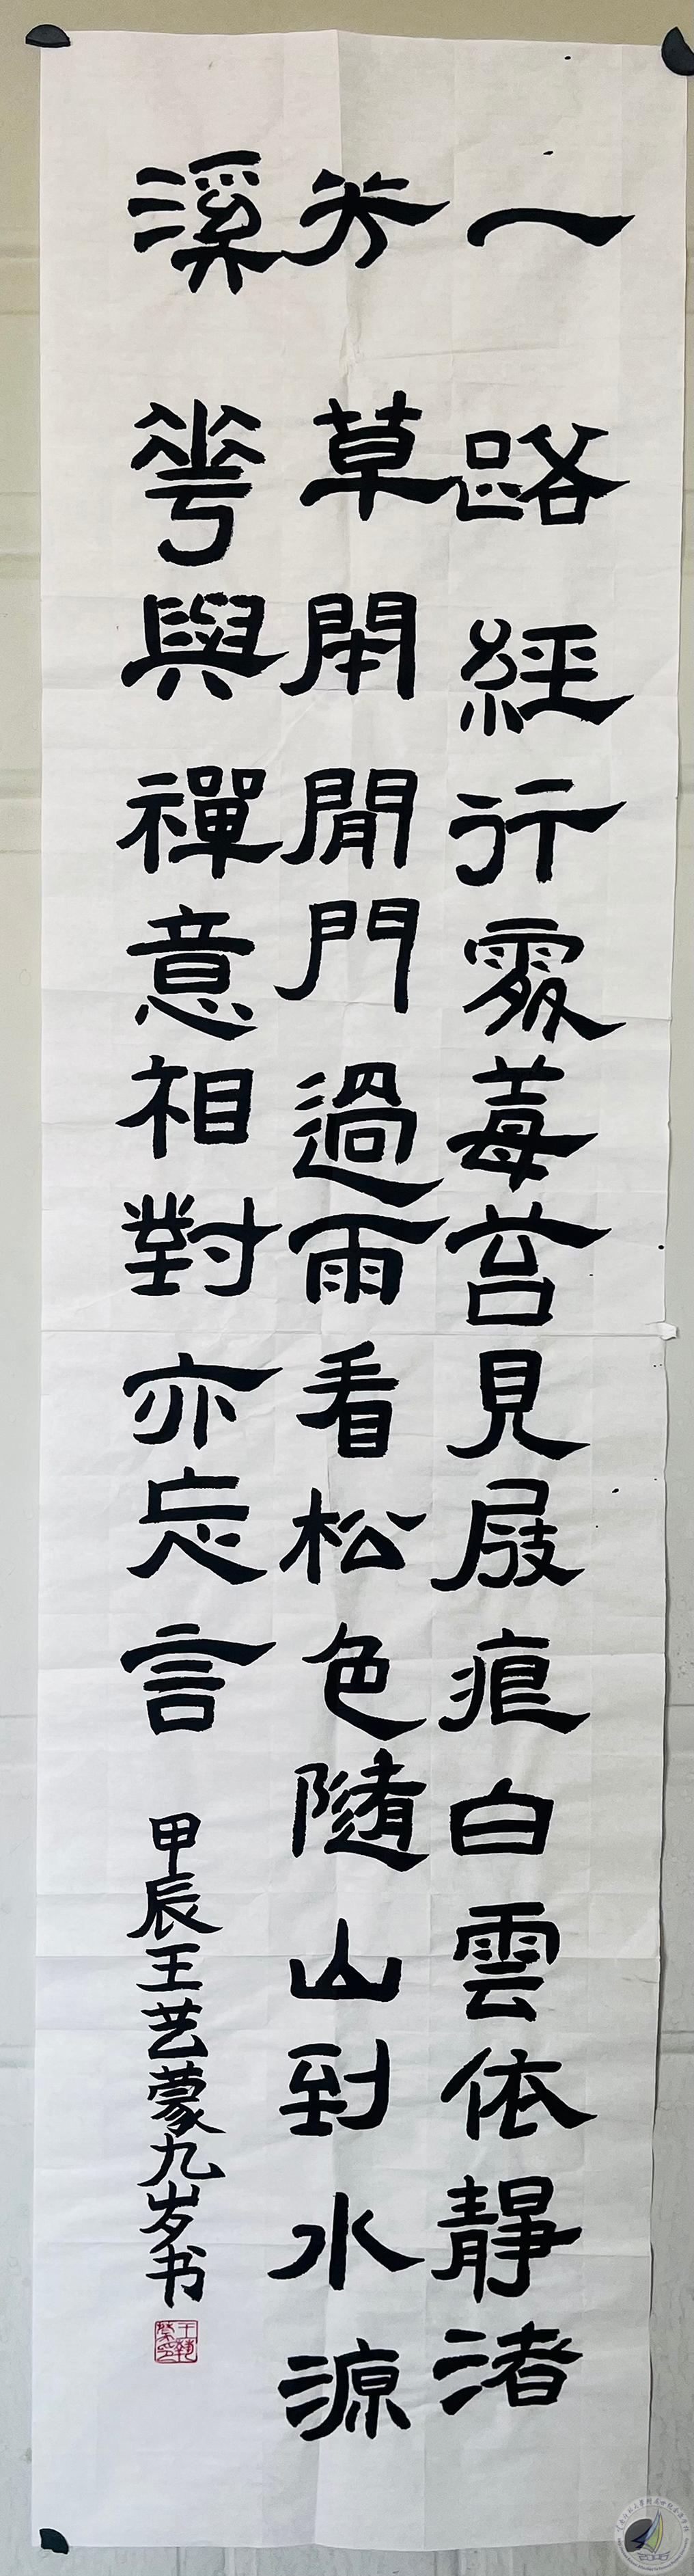 一路經行處莓苔見屐痕白雲依靜渚
芳草閉閒門過雨看松色隨山到水源
溪花與禪意相對亦忘言
甲辰王艺蒙九岁书